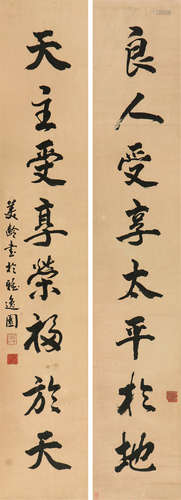 良人受享太平於地
天主受享榮福於天
美齡書於 逸園